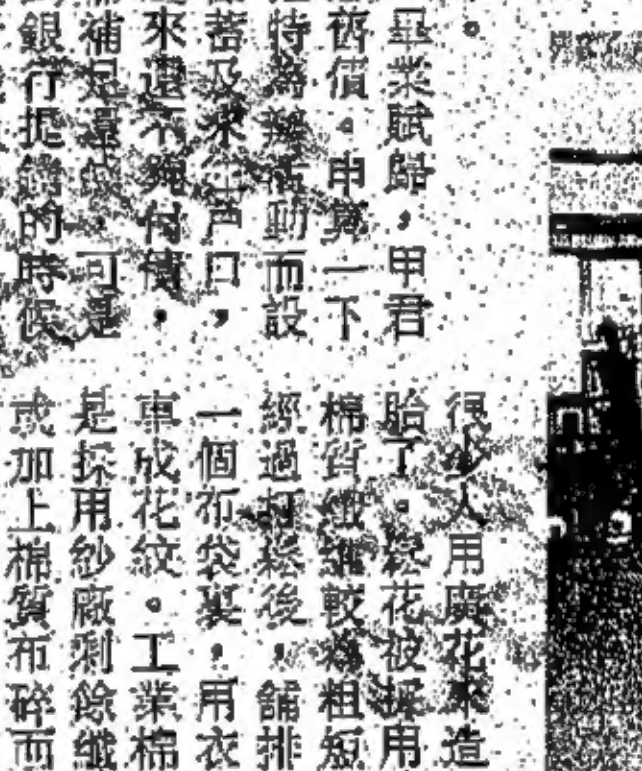 。
畢業賦歸，甲君
舊債。申算一下
特為辦活動而設
蓄及來往戶口，
來還不夠付債，
補足還款，可是
銀行的時候
很少人用廣花來造
胎了。鬆花被採用
棉質纖維較為粗短
經過打鬆後，舖排
一個布袋裏，用衣
車成花紋。工業棉
是採用紗廠剩餘纖
或加上棉質布碎而